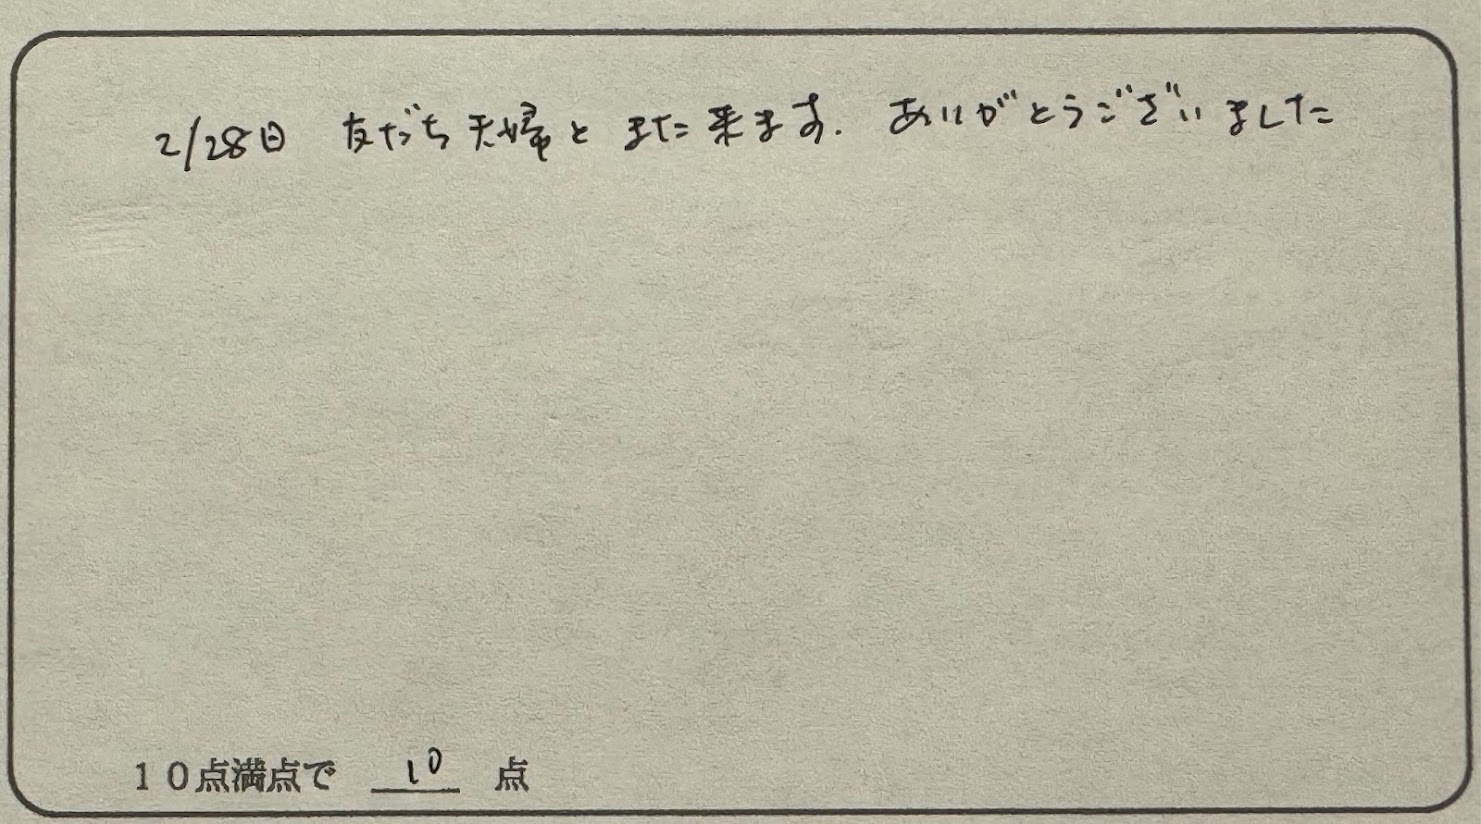 2/28日 友だち夫婦と また来ます. ありがとうございました
10点満点で 10 点